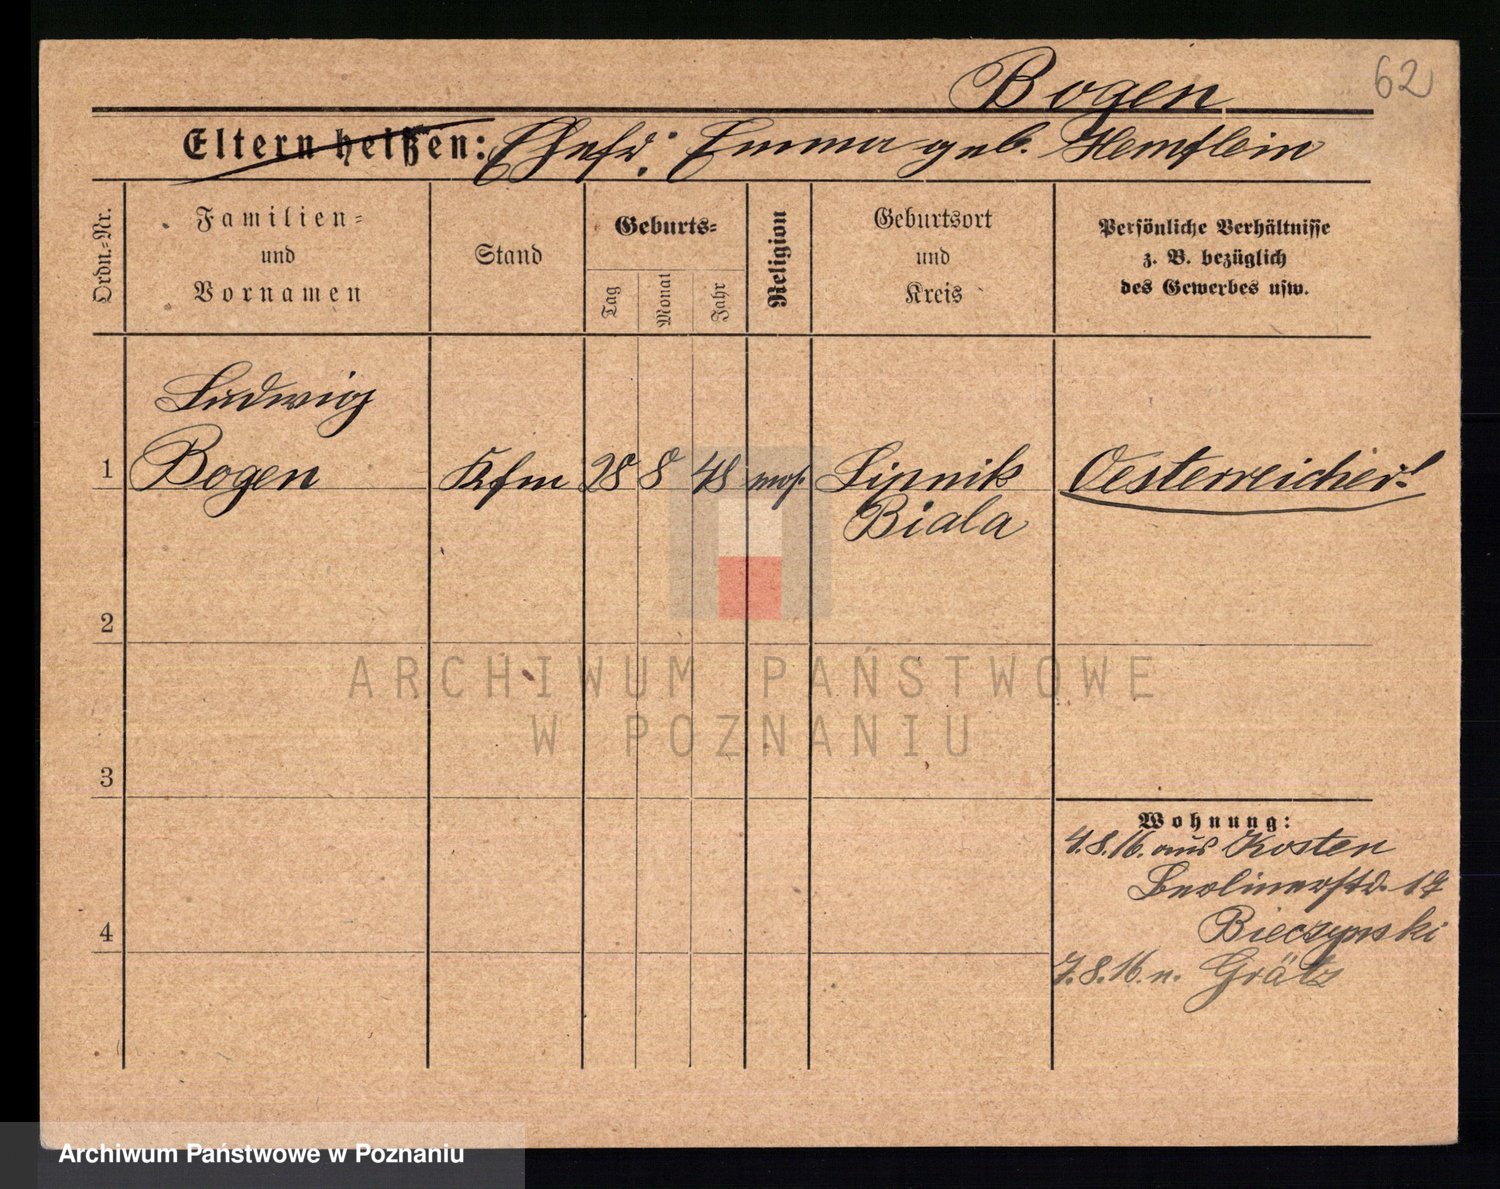 Bogen
62
Eltern heißen: Ehefr: Emma geb. Hemflein
Ordn.=Nr.
Familien=
und
Vornamen
Stand
Geburts=
Tag
Monat
Jahr
Religion
Geburtsort
und
Kreis
Persönliche Verhältnisse
z. B. bezüglich
des Gewerbes usw.
Ludwig
1 Bogen Kfm 28 8 48 mos. Lipnik Oesterreicher!
Biala
2
3
4
Wohnung:
4.8.16. aus Kosten
Berlinerstr. 17
Bieczynski
7.8.16. n. Grätz
ARCHIWUM PAŃSTWOWE
W POZNANIU
Archiwum Państwowe w Poznaniu